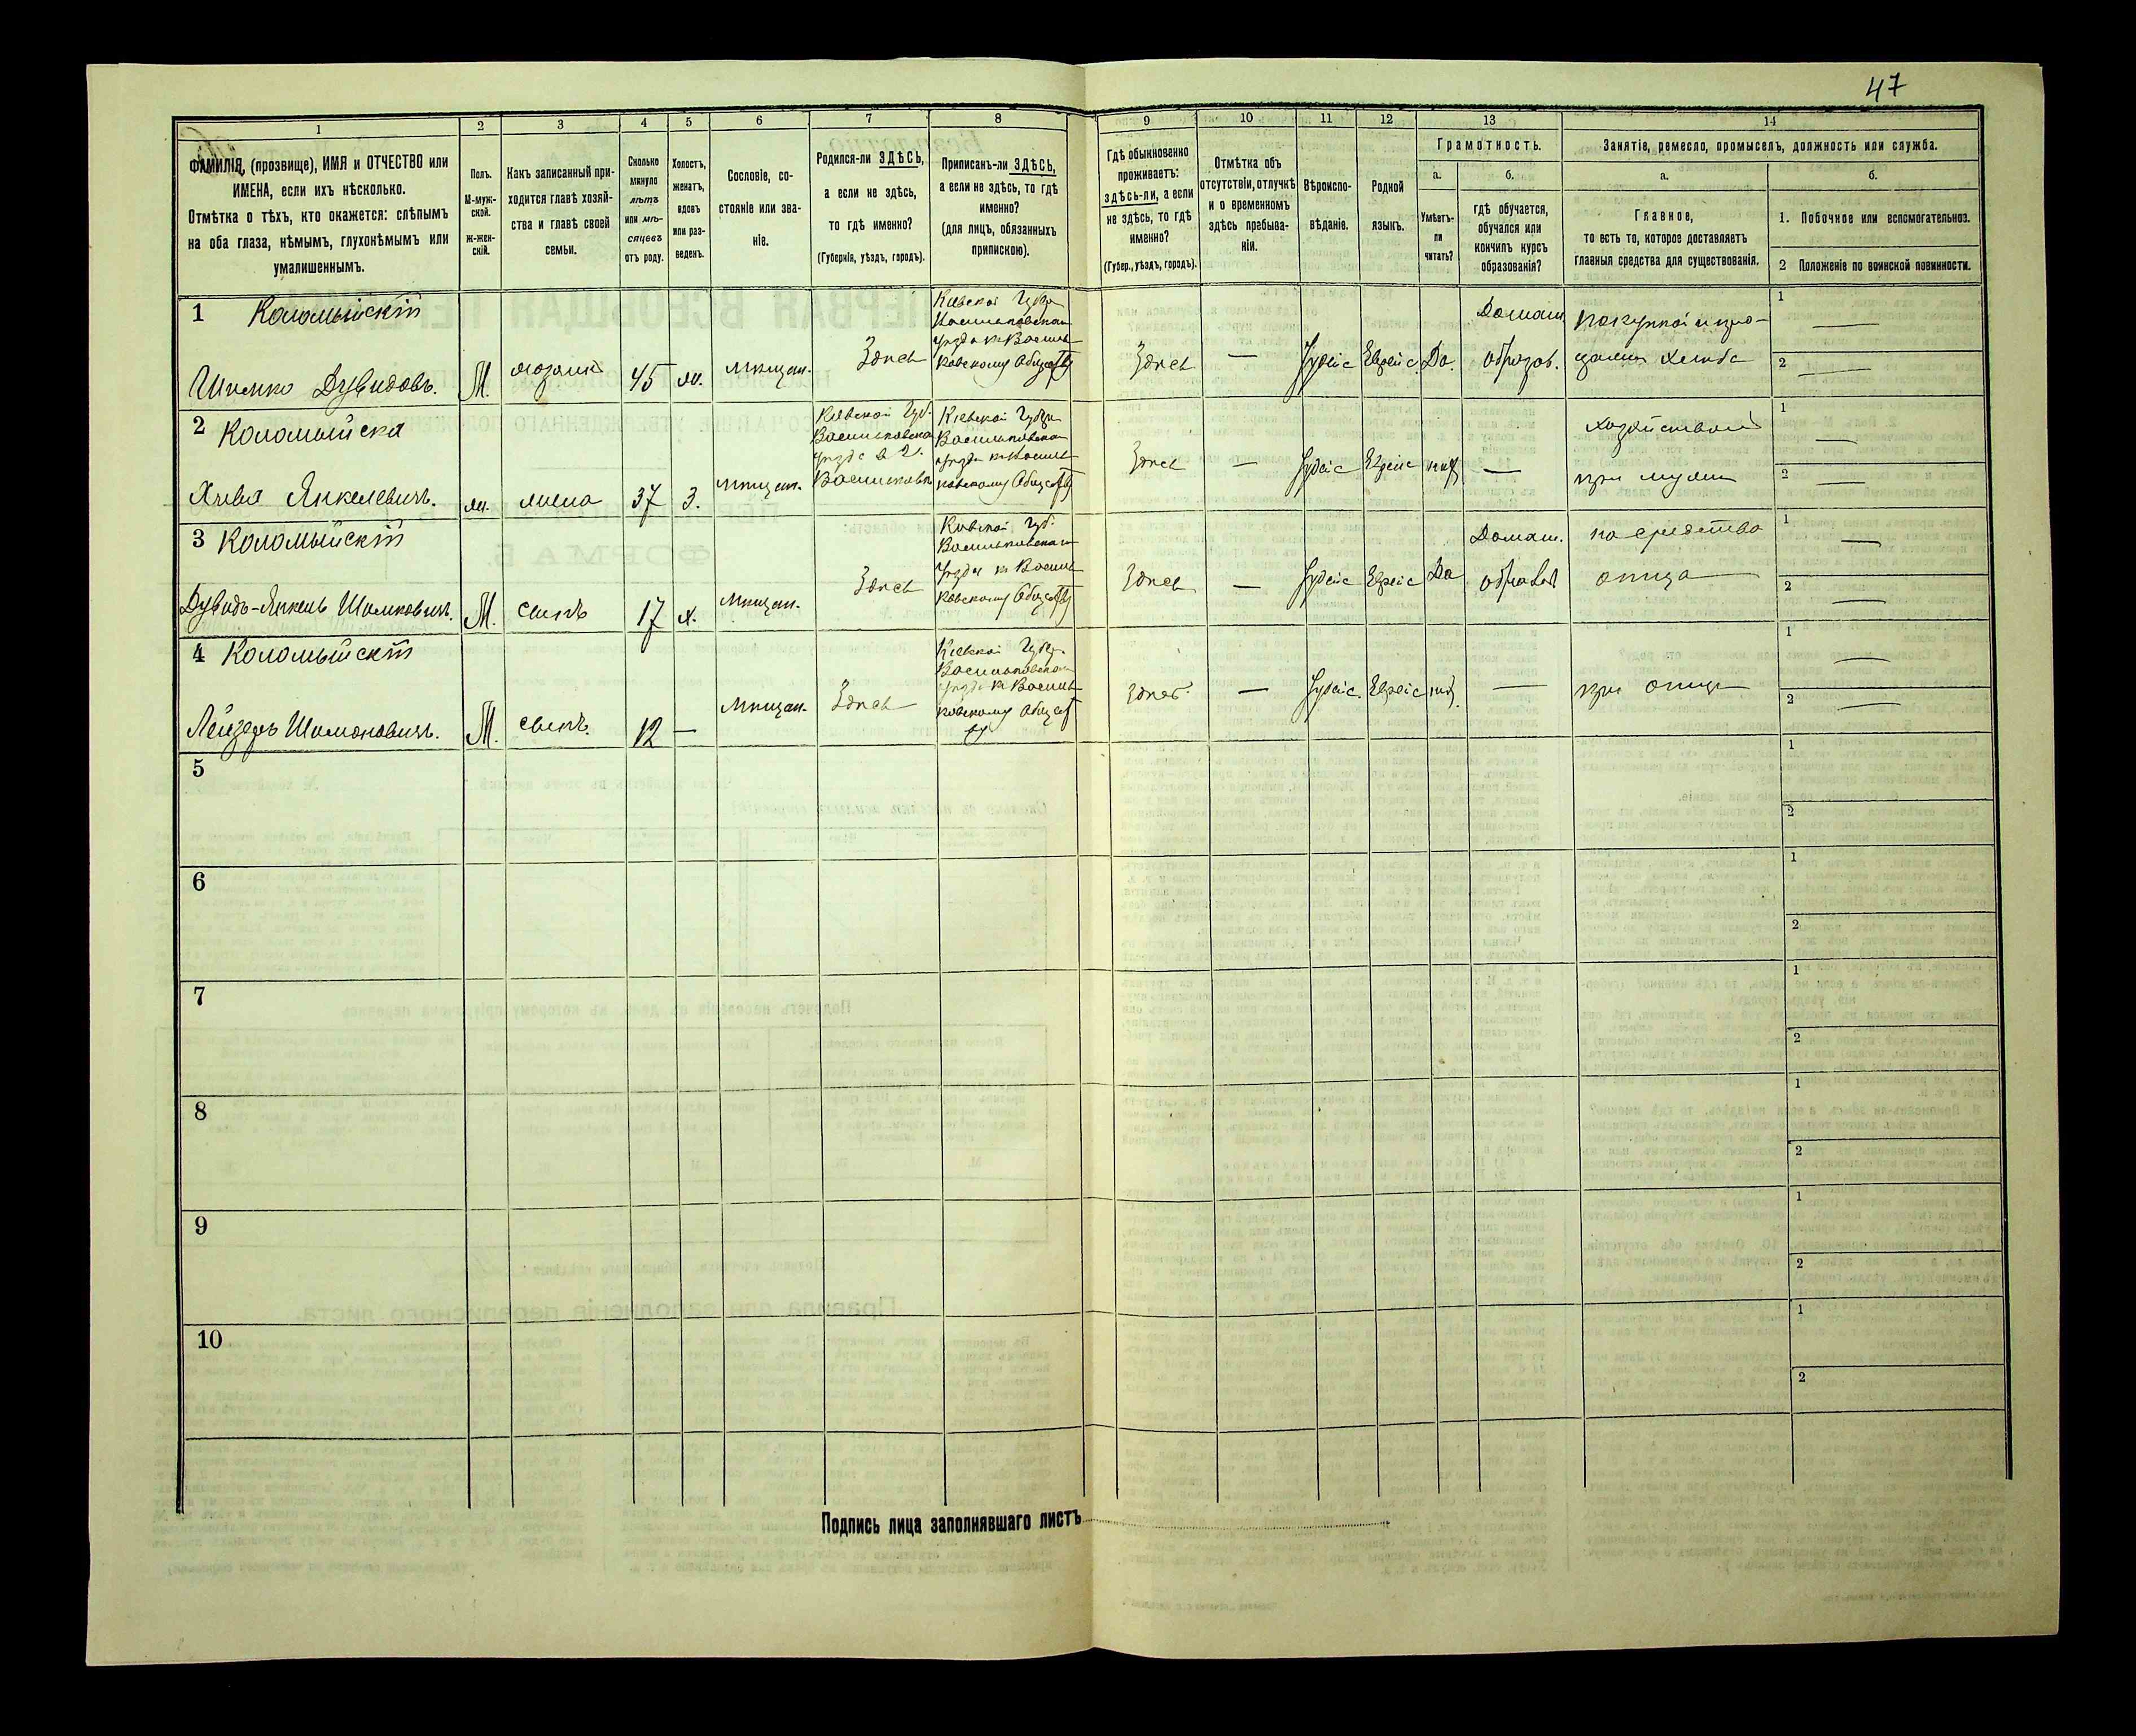 47
1 2 3 4 5 6 7 8 9 10 11 12 13 14
ФАМИЛІЯ, (прозвище), ИМЯ и ОТЧЕСТВО или
ИМЕНА, если ихъ нѣсколько.
Отмѣтка о тѣхъ, кто окажется: слѣпымъ
на оба глаза, нѣмымъ, глухонѣмымъ или
умалишеннымъ.
Полъ.
М-муж-
ской.
ж-жен-
скій.
Какъ записанный при-
ходится главѣ хозяй-
ства и главѣ своей
семьи.
Сколько
минуло
лѣтъ
или мѣ-
сяцевъ
отъ роду.
Холостъ,
женатъ,
вдовъ
или раз-
веденъ.
Сословіе, со-
стояніе или зва-
ніе.
Родился-ли ЗДѢСЬ,
а если не здѣсь,
то гдѣ именно?
(Губернія, уѣздъ, городъ).
Приписанъ-ли ЗДѢСЬ,
а если не здѣсь, то гдѣ
именно?
(для лицъ, обязанныхъ
припискою).
Гдѣ обыкновенно
проживаетъ:
здѣсь-ли, а если
не здѣсь, то гдѣ
именно?
(Губер., уѣздъ, городъ).
Отмѣтка объ
отсутствіи, отлучкѣ
и о временномъ
здѣсь пребыва-
ніи.
Вѣроиспо-
вѣданіе.
Родной
языкъ.
Грамотность.
а.
Умѣетъ-
ли
читать?
б.
гдѣ обучается,
обучался или
кончилъ курсъ
образованія?
Занятіе, ремесло, промыселъ, должность или служба.
а.
Главное,
то есть то, которое доставляетъ
главныя средства для существованія.
б.
1. Побочное или вспомогательное.
2 Положеніе по воинской повинности.
1 Коломыйскій
Шлемко Дувидовъ.
М.
хозяинъ
45
ж.
мѣщан.
Здѣсь
Кіевской Губер
Васильковскаго
уѣзда къ Василь-
ковскому Обществу
Здѣсь
—
Іудейс
Еврейс.
Да.
Домаш.
образов.
покупкой и про-
дажею хлѣба
1 —
2 —
2 Коломыйска
Хивля Янкелевичъ.
ж.
жена
37
З.
мѣщан.
Кіевской Губ.
Васильковска
уѣзда в г.
Васильковѣ
Кіевской Губер
Васильковскаго
уѣзда къ Василь-
ковскому Обществу
Здѣсь
—
Іудейс
Еврейс
нѣт
—
хозяйством
при мужѣ
1 —
2 —
3 Коломыйскій
Дувидъ-Янкель Шлемковичъ.
М.
сынъ
17
х.
мѣщан.
Здѣсь
Кіевской Губ.
Васильковскаго
уѣзда къ Василь-
ковскому Обществу
Здѣсь
—
Іудейс
Еврейс
Да
Домаш.
образов
на средства
отца
1 —
2 —
4 Коломыйскій
Лейзеръ Шлемоновичъ.
М.
сынъ.
12
—
мѣщан.
Здѣсь
Кіевской Губер.
Васильковскаго
уѣзда къ Василь-
ковскому Общест
ву
Здѣсь.
—
Іудейс.
Еврейс
нѣт.
—
при отцѣ
1 —
2 —
5
1
2
6
1
2
7
1
2
8
1
2
9
1
2
10
1
2
Подпись лица заполнявшаго листъ